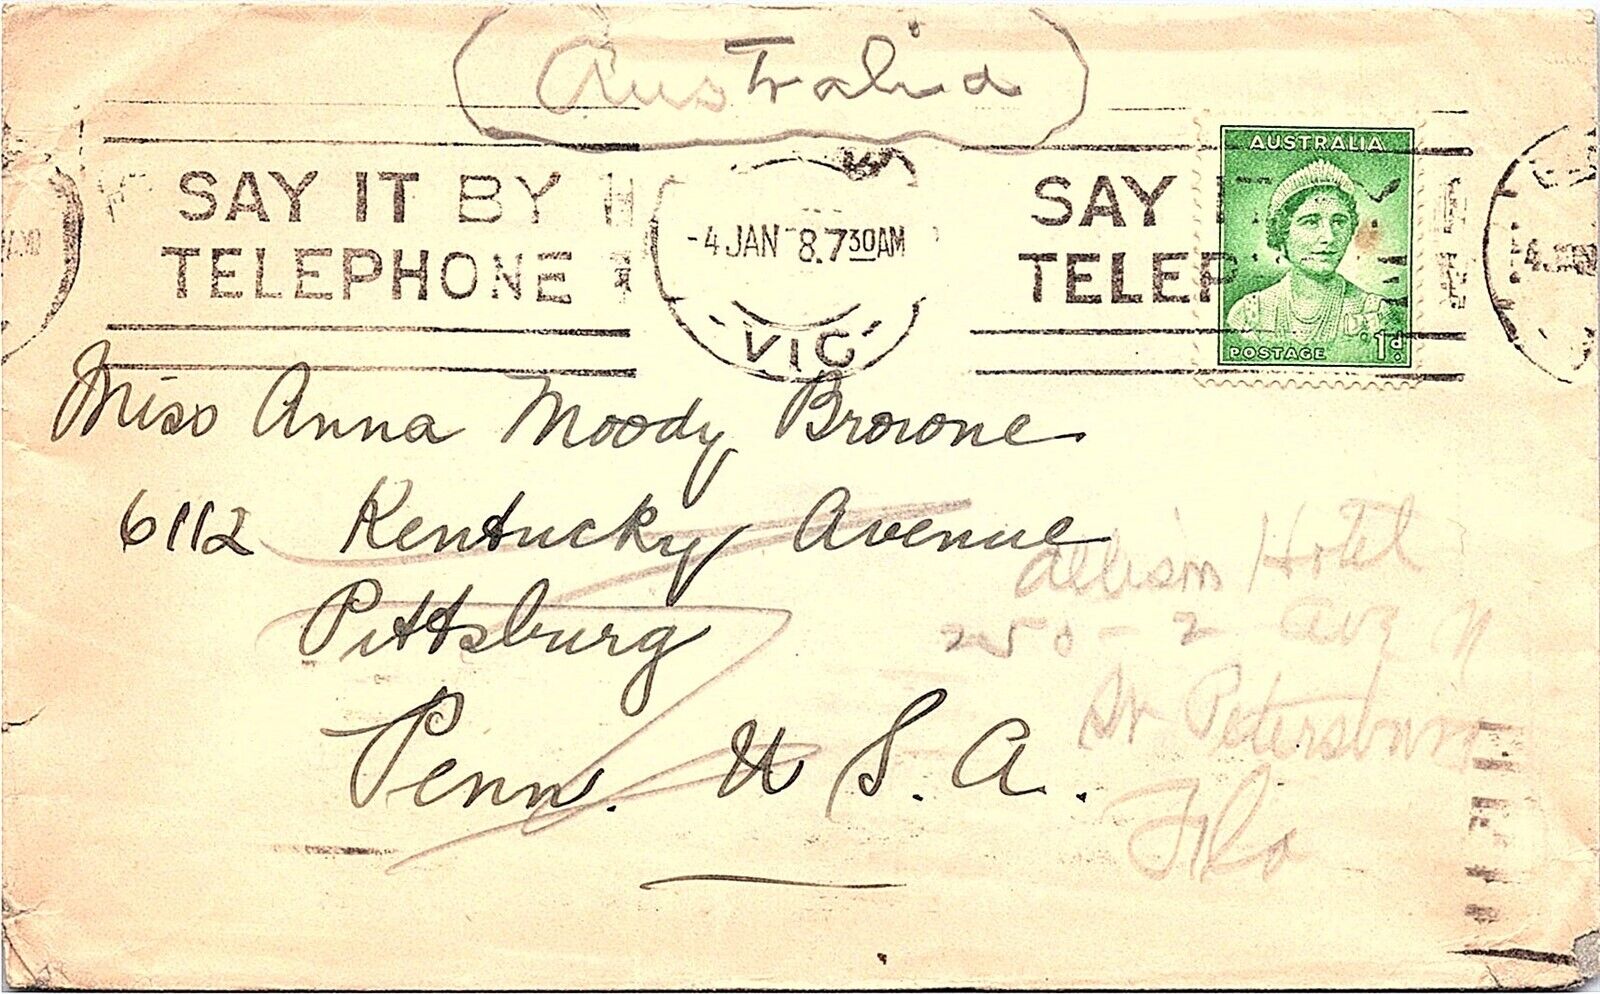 Australia
SAY IT BY
TELEPHONE
-4 JAN 8. 730AM
VIC
SAY
TELEP
AUSTRALIA
POSTAGE 1d.
4 JAN
Miss Anna Moody Browne
6112 Kentucky Avenue
Pittsburg
Penn. U S. A.
Hotel
250-2 Ave N
St Petersburg
Fla